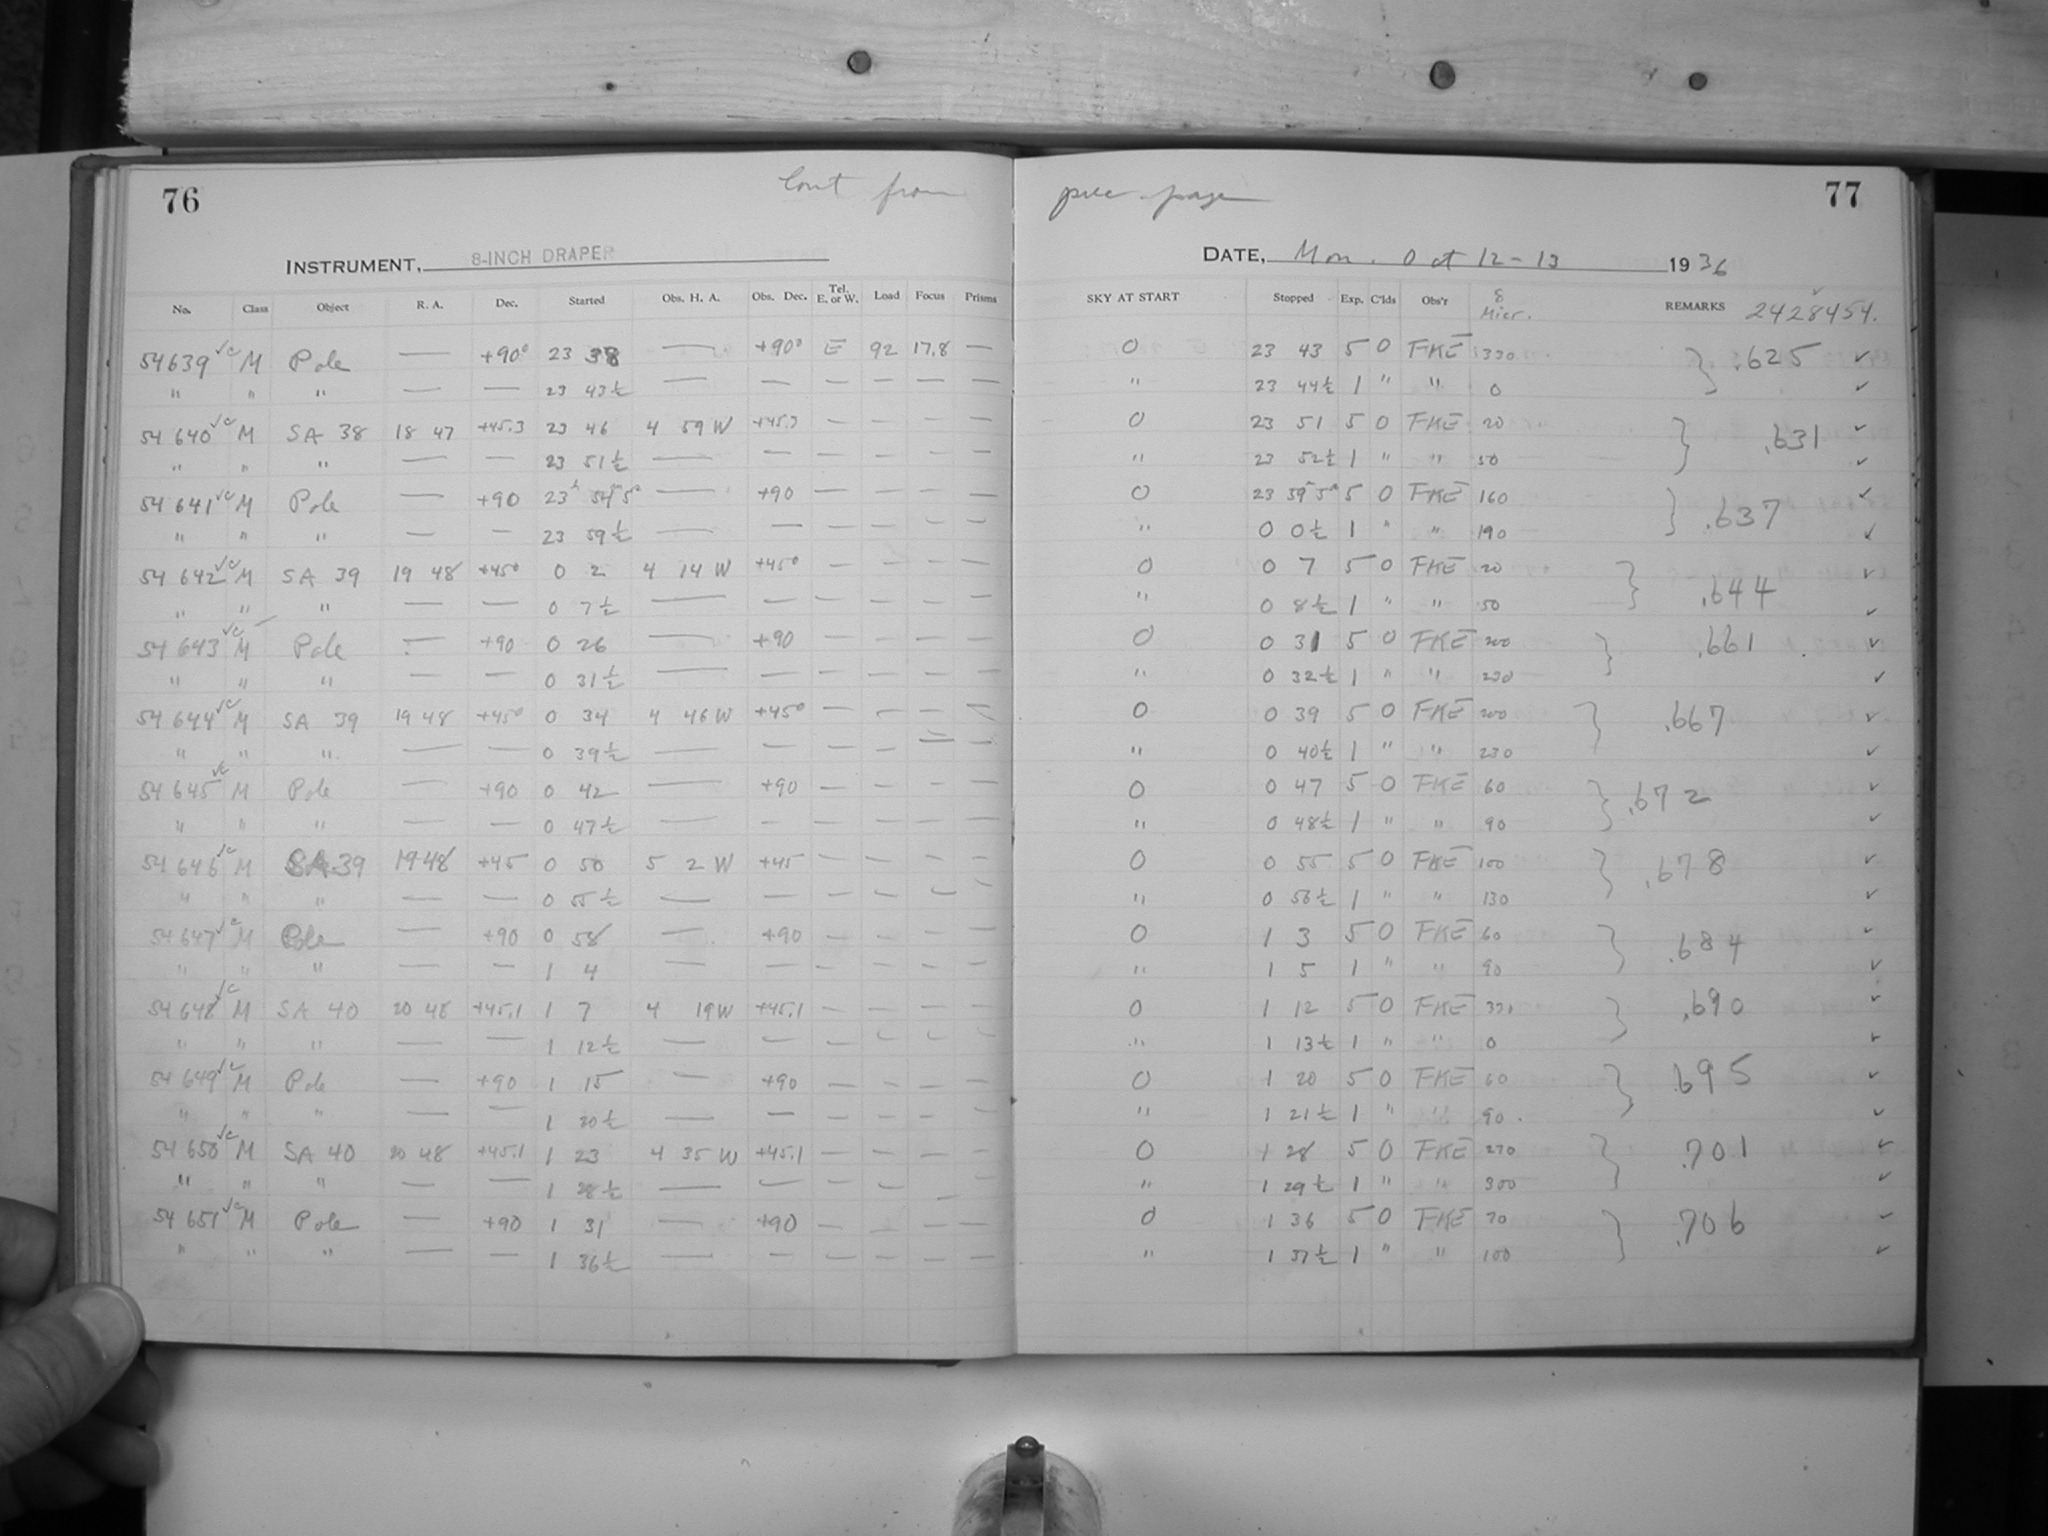 76 Cont from prec. page 77
INSTRUMENT, 8-INCH DRAPER DATE, Mon. Oct 12-13 1936
No. Class Object R. A. Dec. Started Obs. H. A. Obs. Dec. Tel. E. or W. Load Focus Prisms SKY AT START Stopped Exp. C'lds Obs'r δ Micr. REMARKS 2428454.
54639 √c M Pole — +90° 23 38 — +90° E 92 17.8 — 0 23 43 5 0 FKE 330 } .625 ✓
" " " — — 23 43½ — — — — — — " 23 44½ 1 " " 0 ✓
54640 √c M SA 38 18 47 +45.3 23 46 4 59 W +45.3 — — — — 0 23 51 5 0 FKE 20 } .631 ✓
" " " — — 23 51½ — — — — — — " 23 52½ 1 " " 50 ✓
54641 √c M Pole — +90 23ʰ 54ᵐ 5ˢ — +90 — — — — 0 23 59ᵐ 5ˢ 5 0 FKE 160 } .637 ✓
" " " — — 23 59½ — — — — — — " 0 0½ 1 " " 190 ✓
54642 √c M SA 39 19 48 +45° 0 2 4 14 W +45° — — — — 0 0 7 5 0 FKE 20 } .644 ✓
" " " — — 0 7½ — — — — — — " 0 8½ 1 " " 50 ✓
54643 √c M Pole — +90 0 26 — +90 — — — — 0 0 31 5 0 FKE 200 } .661 ✓
" " " — — 0 31½ — — — — — — " 0 32½ 1 " " 230 ✓
54644 √c M SA 39 19 48 +45° 0 34 4 46 W +45° — — — — 0 0 39 5 0 FKE 200 } .667 ✓
" " " — — 0 39½ — — — — — — " 0 40½ 1 " " 230 ✓
54645 √c M Pole — +90 0 42 — +90 — — — — 0 0 47 5 0 FKE 60 } .672 ✓
" " " — — 0 47½ — — — — — — " 0 48½ 1 " " 90 ✓
54646 √c M SA 39 19 48 +45 0 50 5 2 W +45 — — — — 0 0 55 5 0 FKE 100 } .678 ✓
" " " — — 0 55½ — — — — — — " 0 56½ 1 " " 130 ✓
54647 √c M Pole — +90 0 58 — +90 — — — — 0 1 3 5 0 FKE 60 } .684 ✓
" " " — — 1 4 — — — — — — " 1 5 1 " " 90 ✓
54648 √c M SA 40 20 48 +45.1 1 7 4 19 W +45.1 — — — — 0 1 12 5 0 FKE 330 } .690 ✓
" " " — — 1 12½ — — — — — — " 1 13½ 1 " " 0 ✓
54649 √c M Pole — +90 1 15 — +90 — — — — 0 1 20 5 0 FKE 60 } .695 ✓
" " " — — 1 20½ — — — — — — " 1 21½ 1 " " 90 ✓
54650 √c M SA 40 20 48 +45.1 1 23 4 35 W +45.1 — — — — 0 1 28 5 0 FKE 270 } .701 ✓
" " " — — 1 28½ — — — — — — " 1 29½ 1 " " 300 ✓
54651 √c M Pole — +90 1 31 — +90 — — — — 0 1 36 5 0 FKE 70 } .706 ✓
" " " — — 1 36½ — — — — — — " 1 37½ 1 " " 100 ✓